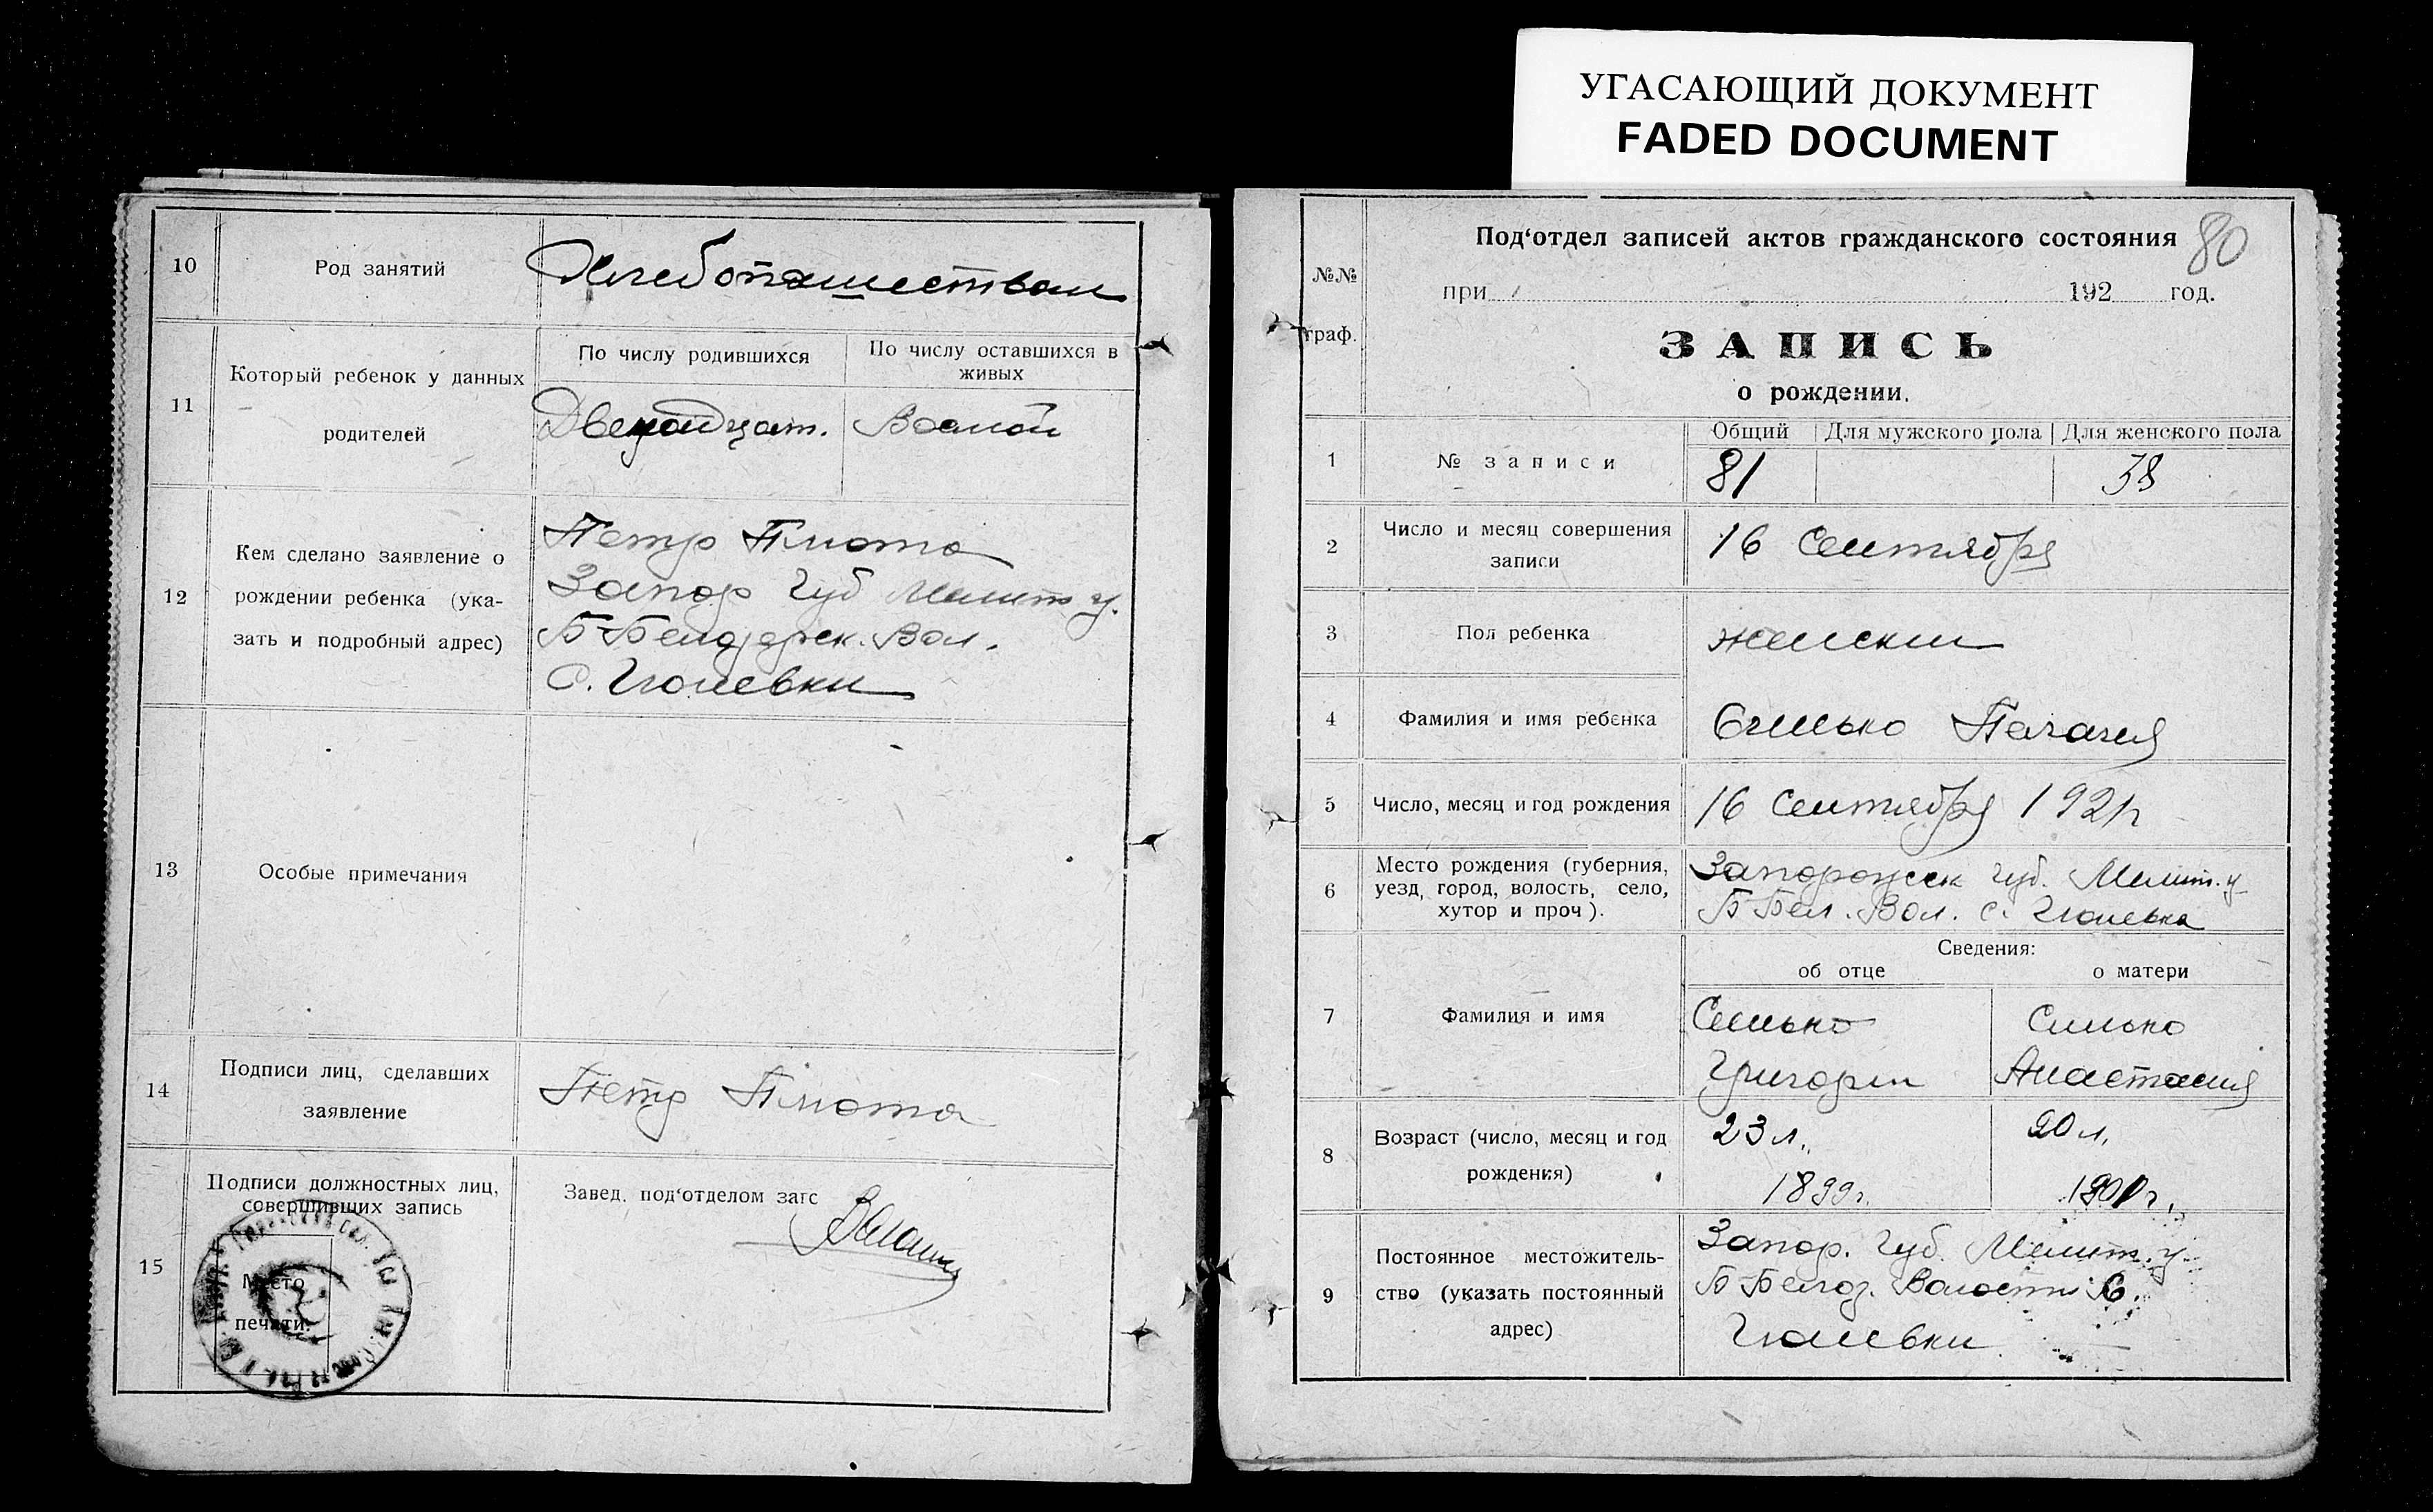 УГАСАЮЩИЙ ДОКУМЕНТ
FADED DOCUMENT
10
Род занятий
Хлебопашеством
11
Который ребенок у данных
родителей
По числу родившихся
По числу оставшихся в
живых
Двенадцат.
Восмой
12
Кем сделано заявление о
рождении ребенка (ука-
зать и подробный адрес)
Петр Плюта
Запор Губ Мелит у.
Б-Белозерск. Вол.
С. Гюневки
13
Особые примечания
14
Подписи лиц, сделавших
заявление
Петр Плюта
15
Подписи должностных лиц,
совершивших запись
Место
печати.
Завед. под‘отделом загс
80
№№
граф.
Под‘отдел записей актов гражданского состояния
при 192 год.
ЗАПИСЬ
о рождении.
1
№ записи
Общий
Для мужского пола
Для женского пола
81
38
2
Число и месяц совершения
записи
16 Сентября
3
Пол ребенка
женски
4
Фамилия и имя ребенка
Пелагея
5
Число, месяц и год рождения
16 Сентября 1921г
6
Место рождения (губерния,
уезд, город, волость, село,
хутор и проч).
Запорожск губ. Мелит. у
Б Бел. Вол. с. Гюневка
Сведения:
об отце
о матери
7
Фамилия и имя
Сенько
Григори
Сенько
Анастасия
8
Возраст (число, месяц и год
рождения)
23 л.
1899г.
20 л.
1901г.
9
Постоянное местожитель-
ство (указать постоянный
адрес)
Запор. Губ. Мелит. у.
Б Белоз. Волости С.
Гюневки